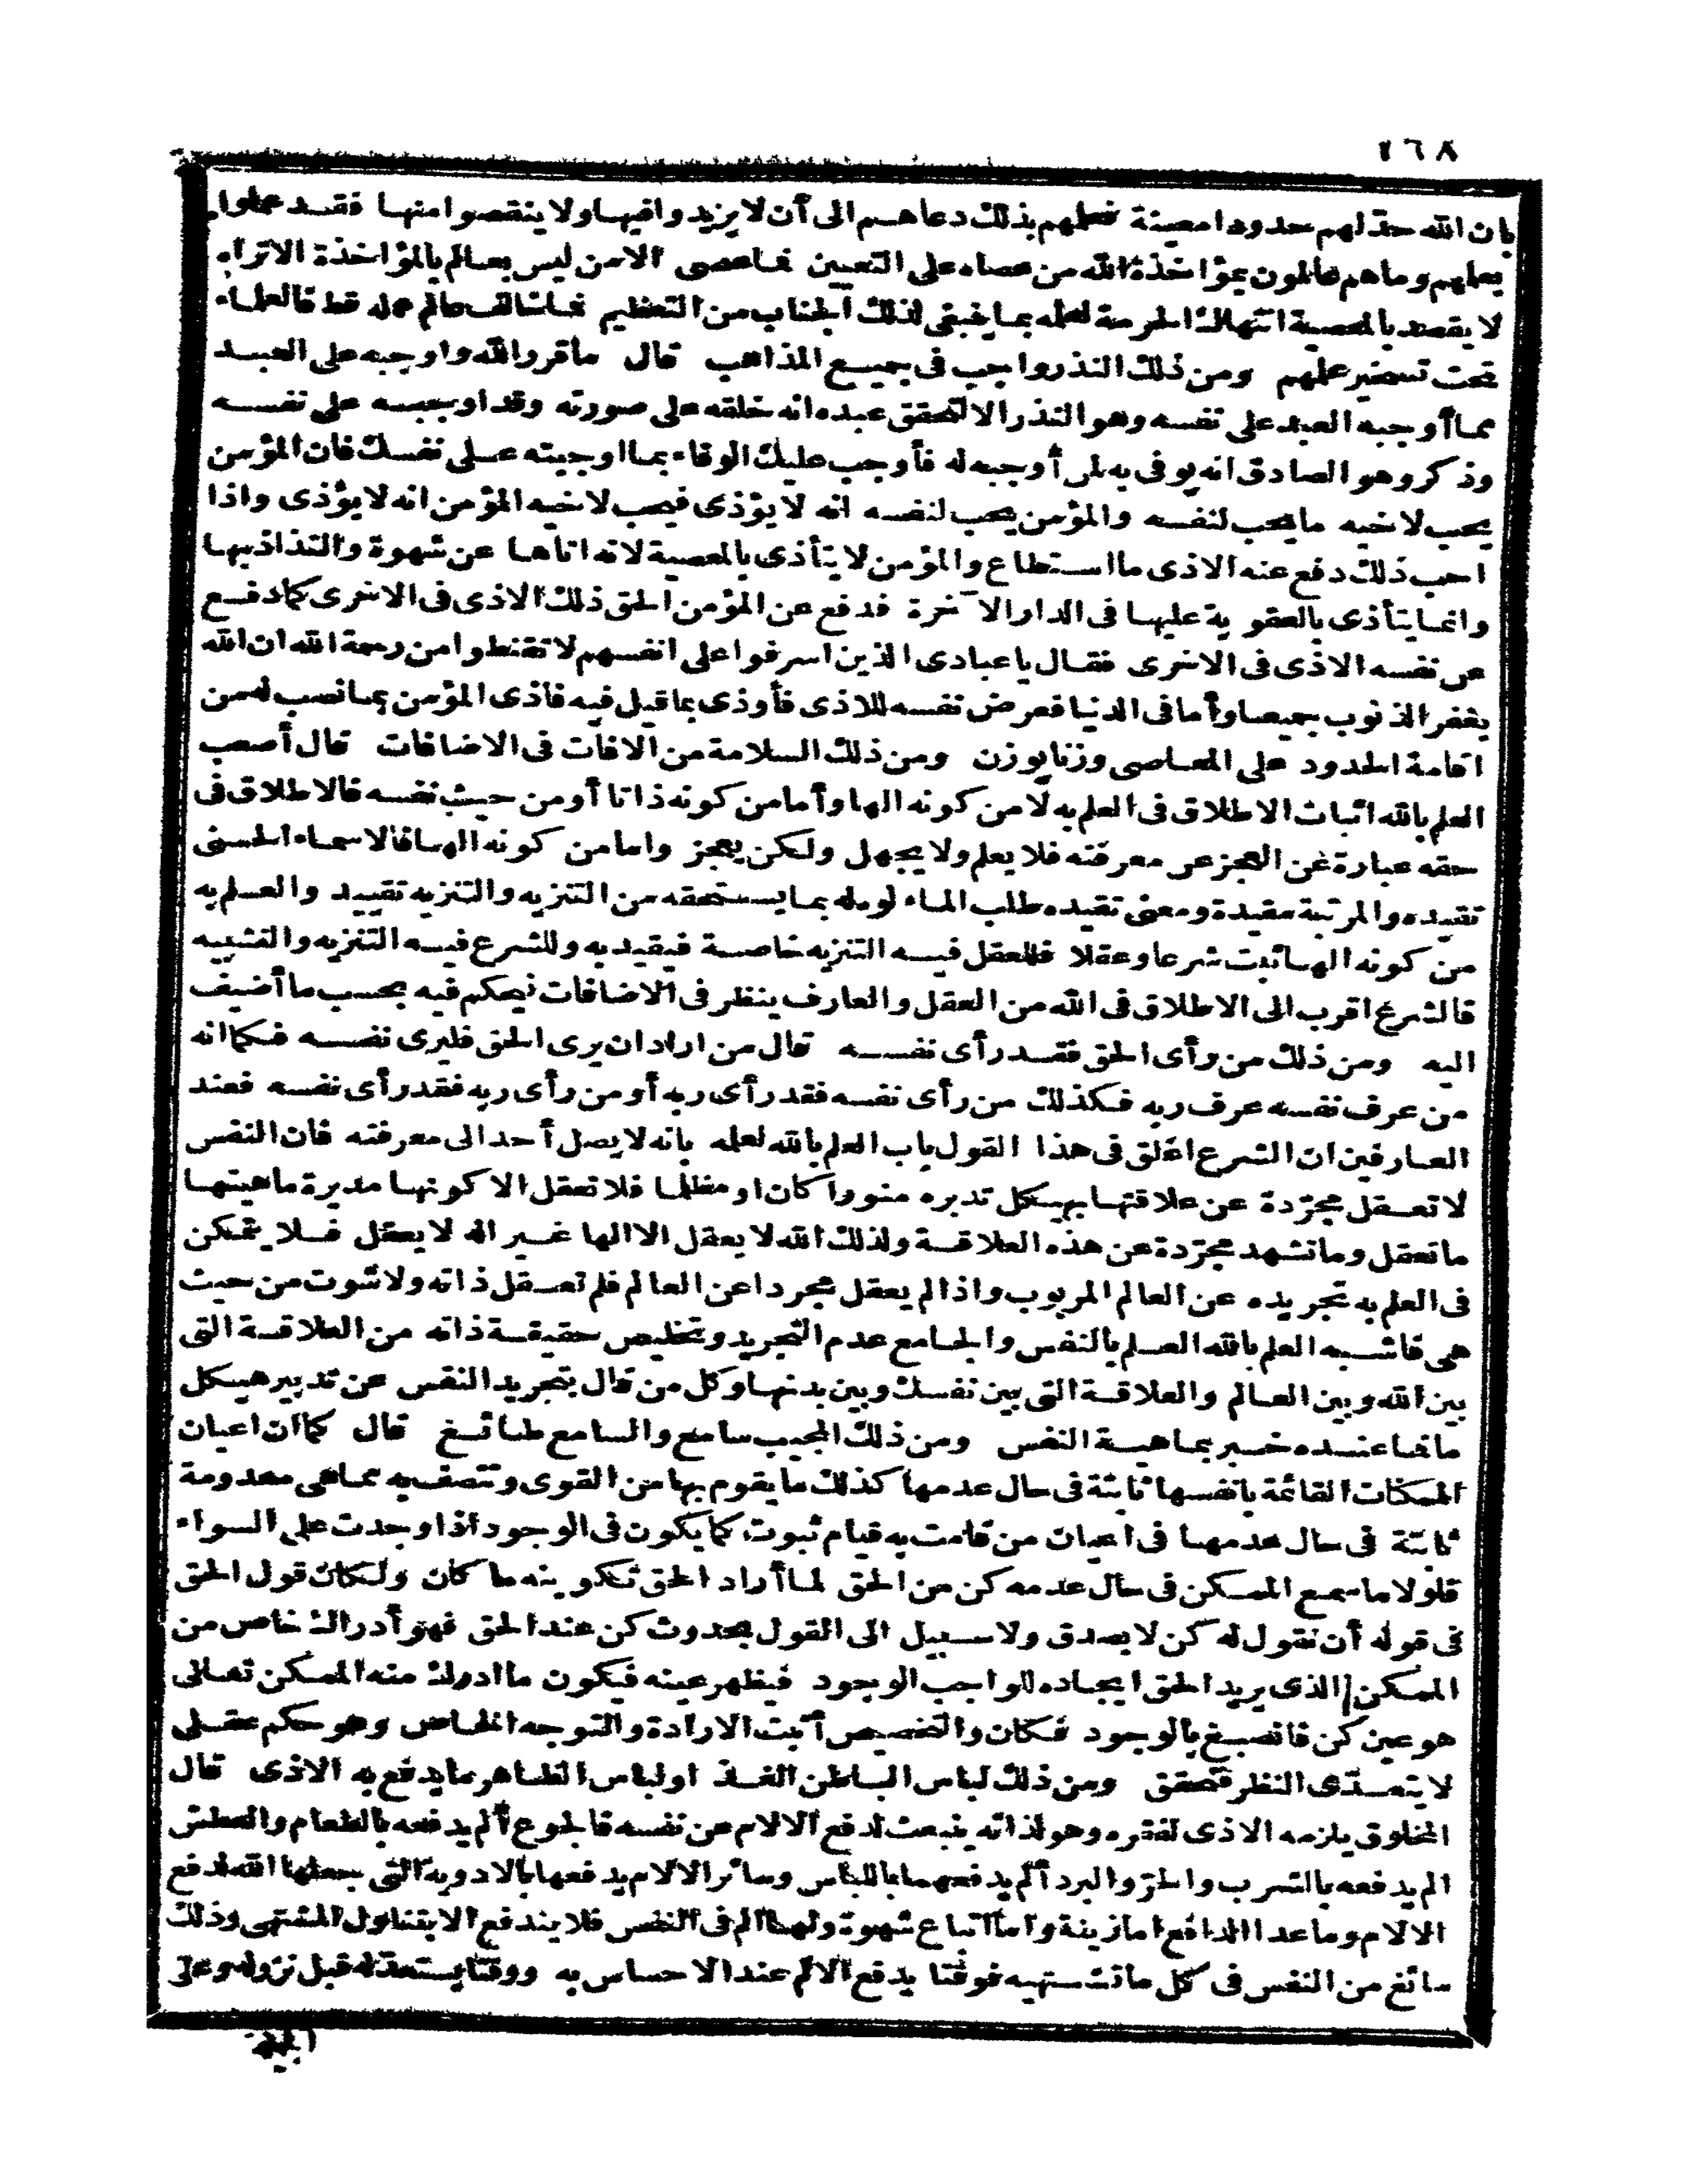 ٢٦٨
بان الله حدّ لهم حدودا معينة فعلهم بذلك دعاهم الى أن لا يزيدوا فيها ولا ينقصوا منها فقد عملوا
بعلمهم وما هم عالمون بمؤاخذة الله من عصاه على التعيين فما عصى الا من ليس بعالم بالمؤاخذة الا تراه
لا يقصد بالمعصية انتهاك الحرمة لعلمه بما ينبغى لذلك الجناب من التعظيم فما خالف عالم علمه قط فالعلماء
تحت تسخير علمهم ومن ذلك النذر واجب فى جميع المذاهب قال ما قرر الله واوجبه على العبد
مما أوجبه العبد على نفسه وهو النذر الا لتحقق عبده انه خلقه على صورته وقد اوجبه على نفسه
وذكر وهو الصادق انه يوفى به لمن أوجبه له فأوجب عليك الوفاء بما اوجبته على نفسك فان المؤمن
يحب لاخيه ما يحب لنفسه والمؤمن يحب لنفسه انه لا يؤذى فيحب لاخيه المؤمن انه لا يؤذى واذا
احب ذلك دفع عنه الاذى ما استطاع والمؤمن لا يتأذى بالمعصية لانه اتاها عن شهوة والتذاذ بها
وانما يتأذى بالعقوبة عليها فى الدار الآخرة فدفع عن المؤمن الحق ذلك الاذى فى الاخرى كما دفع
عن نفسه الاذى فى الاخرى فقال يا عبادى الذين اسرفوا على انفسهم لا تقنطوا من رحمة الله ان الله
يغفر الذنوب جميعا وأما فى الدنيا فعرض نفسه للاذى فأوذى بما قيل فيه فاذى المؤمن بما نصب له من
اقامة الحدود على المعاصى وزنا بوزن ومن ذلك السلامة من الآفات فى الاضافات قال أصعب
العلم بالله اثبات الاطلاق فى العلم به لا من كونه الها وأما من كونه ذاتا أو من حيث نفسه فالاطلاق فى
حقه عبارة عن العجز عن معرفته فلا يعلم ولا يجهل ولكن يعجز واما من كونه الها فالاسماء الحسنى
تقيده والمرتبة مقيدة ومعنى تقيده طلب الماءلوه له بما يستحقه من التنزيه والتنزيه تقييد والعلم به
من كونه الها ثبت شرعا وعقلا فللعقل فيه التنزيه خاصة فيقيد به وللشرع فيه التنزيه والتشبيه
فالشرع اقرب الى الاطلاق فى الله من العقل والعارف ينظر فى الاضافات فيحكم فيه بحسب ما أضيف
اليه ومن ذلك من رأى الحق فقد رأى نفسه قال من اراد ان يرى الحق فليرى نفسه فكما انه
من عرف نفسه عرف ربه فكذلك من رأى نفسه فقد رأى ربه أو من رأى ربه فقد رأى نفسه فعند
العارفين ان الشرع اغلق فى هذا القول باب العلم بالله لعلمه بانه لا يصل أحد الى معرفته فان النفس
لا تعقل مجرّدة عن علاقتها بهيكل تدبره منورا كان او مظلما فلا تعقل الا كونها مدبرة ماهيتها
ما تعقل وما تشهد مجرّدة عن هذه العلاقة ولذلك الله لا يعقل الا الها غير اله لا يعقل فلا يتمكن
فى العلم به تجريده عن العالم المربوب واذا لم يعقل مجردا عن العالم فلم تعقل ذاته ولا شوت من حيث
هى فاشبه العلم بالله العلم بالنفس والجامع عدم التجريد وتخليص حقيقة ذاته من العلاقة التى
بين الله وبين العالم والعلاقة التى بين نفسك وبين بدنها وكل من قال بتجريد النفس عن تدبير هيكل
ما فما عنده خبر بماهية النفس ومن ذلك المجيب سامع والسامع طائع قال كما ان اعيان
الممكنات القائمة بانفسها ثابتة فى حال عدمها كذلك ما يقوم بها من القوى وتتصف به مما هى معدومة
ثابتة فى حال عدمها فى اعيان من قامت به قيام ثبوت كما يكون فى الوجود اذا وجدت على السواء
فلولا ما سمع الممكن فى حال عدمه كن من الحق لما أراد الحق تكوينه ما كان ولكان قول الحق
فى قوله أن نقول له كن لا يصدق ولا سبيل الى القول بحدوث كن عند الحق فهو أدراك خاص من
الممكن الذى يريد الحق ايجاده للواجب الوجود فيظهر عينه فيكون ما ادرك منه الممكن تعالى
هو عين كن فانصبغ بالوجود فكان والتخصيص أثبت الارادة والتوجه الخاص وهو حكم عقلى
لا يتعدّى النظر فتحقق ومن ذلك لباس الباطن الغذا ولباس الظاهر ما يدفع به الاذى قال
المخلوق يلزمه الاذى لفقره وهو لذاته ينبعث لدفع الآلام عن نفسه فالجوع ألم يدفعه بالطعام والعطش
الم يدفعه بالشرب والحرّ والبرد ألم يدفعهما باللباس وسائر الآلام يدفعها بالادوية التى جعلها الله لدفع
الآلام وما عدا الدافع اما زينة واما اتباع شهوة ولها الم فى النفس فلا يندفع الا بتناول المشتهى وذلك
سائغ من النفس فى كل ما تشتهيه فوقتا يدفع الالم عند الاحساس به ووقتا يستعدّ له قبل نزوله وعلى